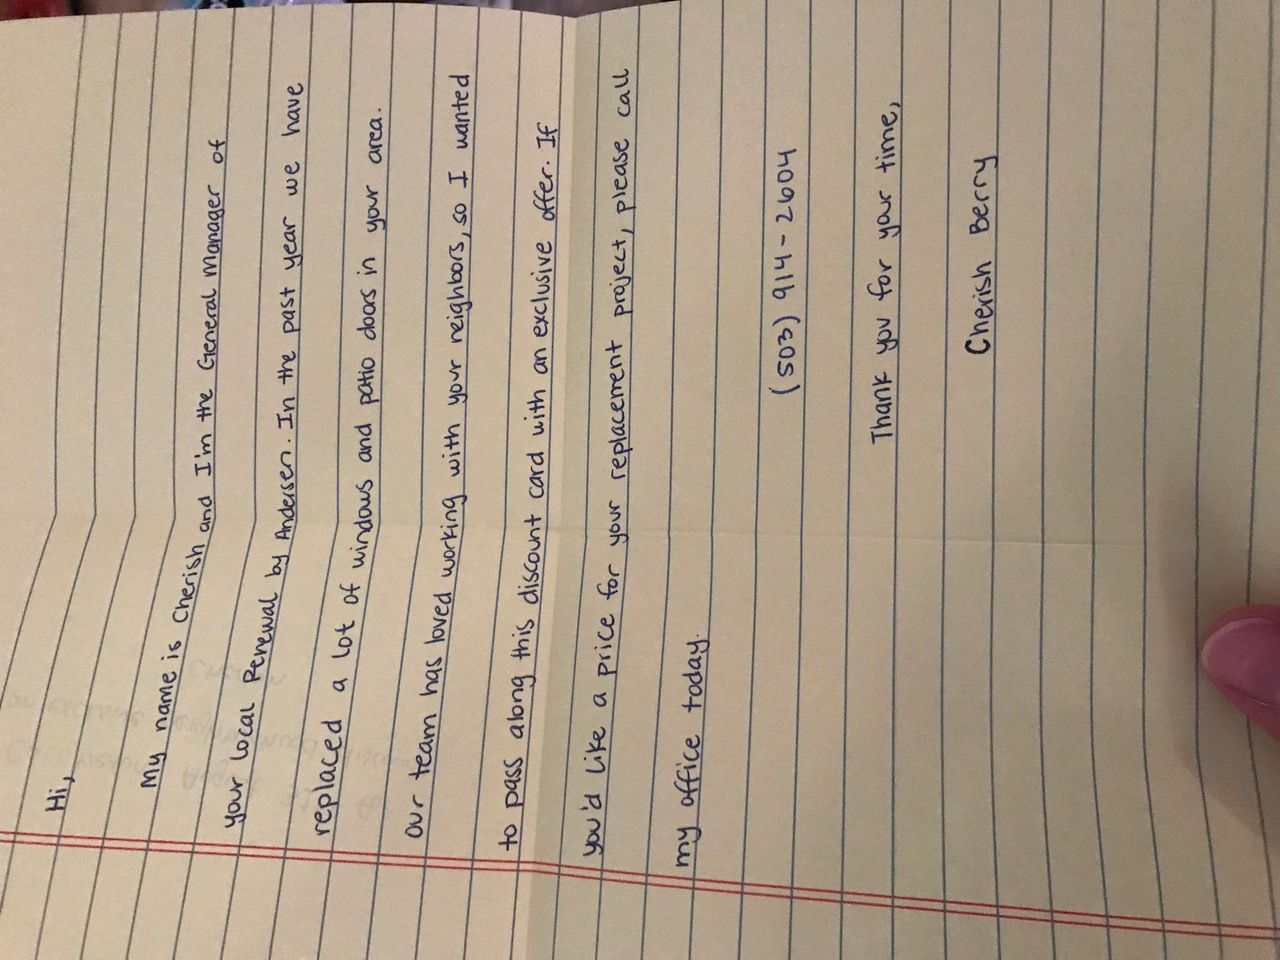 Hi,
My name is Cherish and I'm the General Manager of
your local Renewal by Andersen. In the past year we have
replaced a lot of windows and patio doors in your area.
Our team has loved working with your neighbors, so I wanted
to pass along this discount card with an exclusive offer. If
you'd like a price for your replacement project, please call
my office today.
(503) 914-2604
Thank you for your time,
Cherish Berry